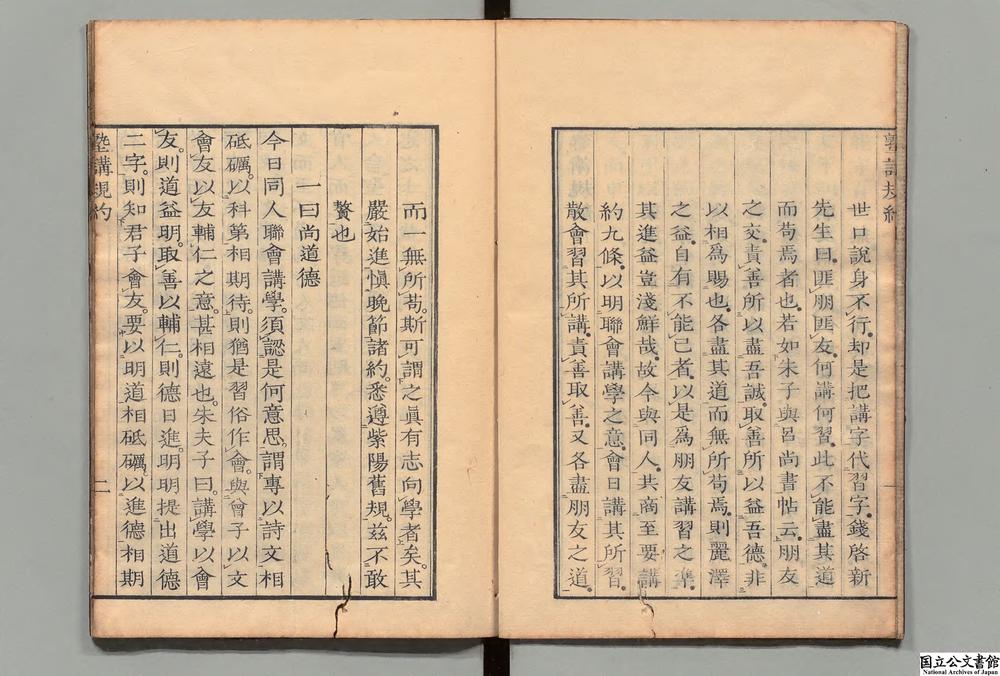 世口說身不行。却是把講字代習字。錢啓新
先生曰。匪朋匪友。何講何習。此不能盡其道
而苟焉者也。若如朱子與呂尚書帖云。朋友
之交。責善所以盡吾誠。取善所以益吾德。非
以相爲賜也。各盡其道而無所苟焉。則麗澤
之益。自有不能已者。以是爲朋友講習之準。
其進益豈淺鮮哉。故今與同人。共商至要講
約九條。以明聯會講學之意。會日講其所習。
散會習其所講。責善取善。又各盡朋友之道。
塾講規約
而一無所苟。斯可謂之眞有志向學者矣。其
嚴始進愼晚節諸約。悉遵紫陽舊規。茲不敢
贅也
一曰尚道德
今日同人聯會講學。須認是何意思。謂專以詩文相
砥礪。以科第相期待。則猶是習俗作會。與曾子以文
會友以友輔仁之意。甚相遠也。朱夫子曰。講學以會
友。則道益明。取善以輔仁。則德日進。明明提出道德
二字。則知君子會友。要以明道相砥礪。以進德相期
塾講規約
二
国立公文書館
National Archives of Japan